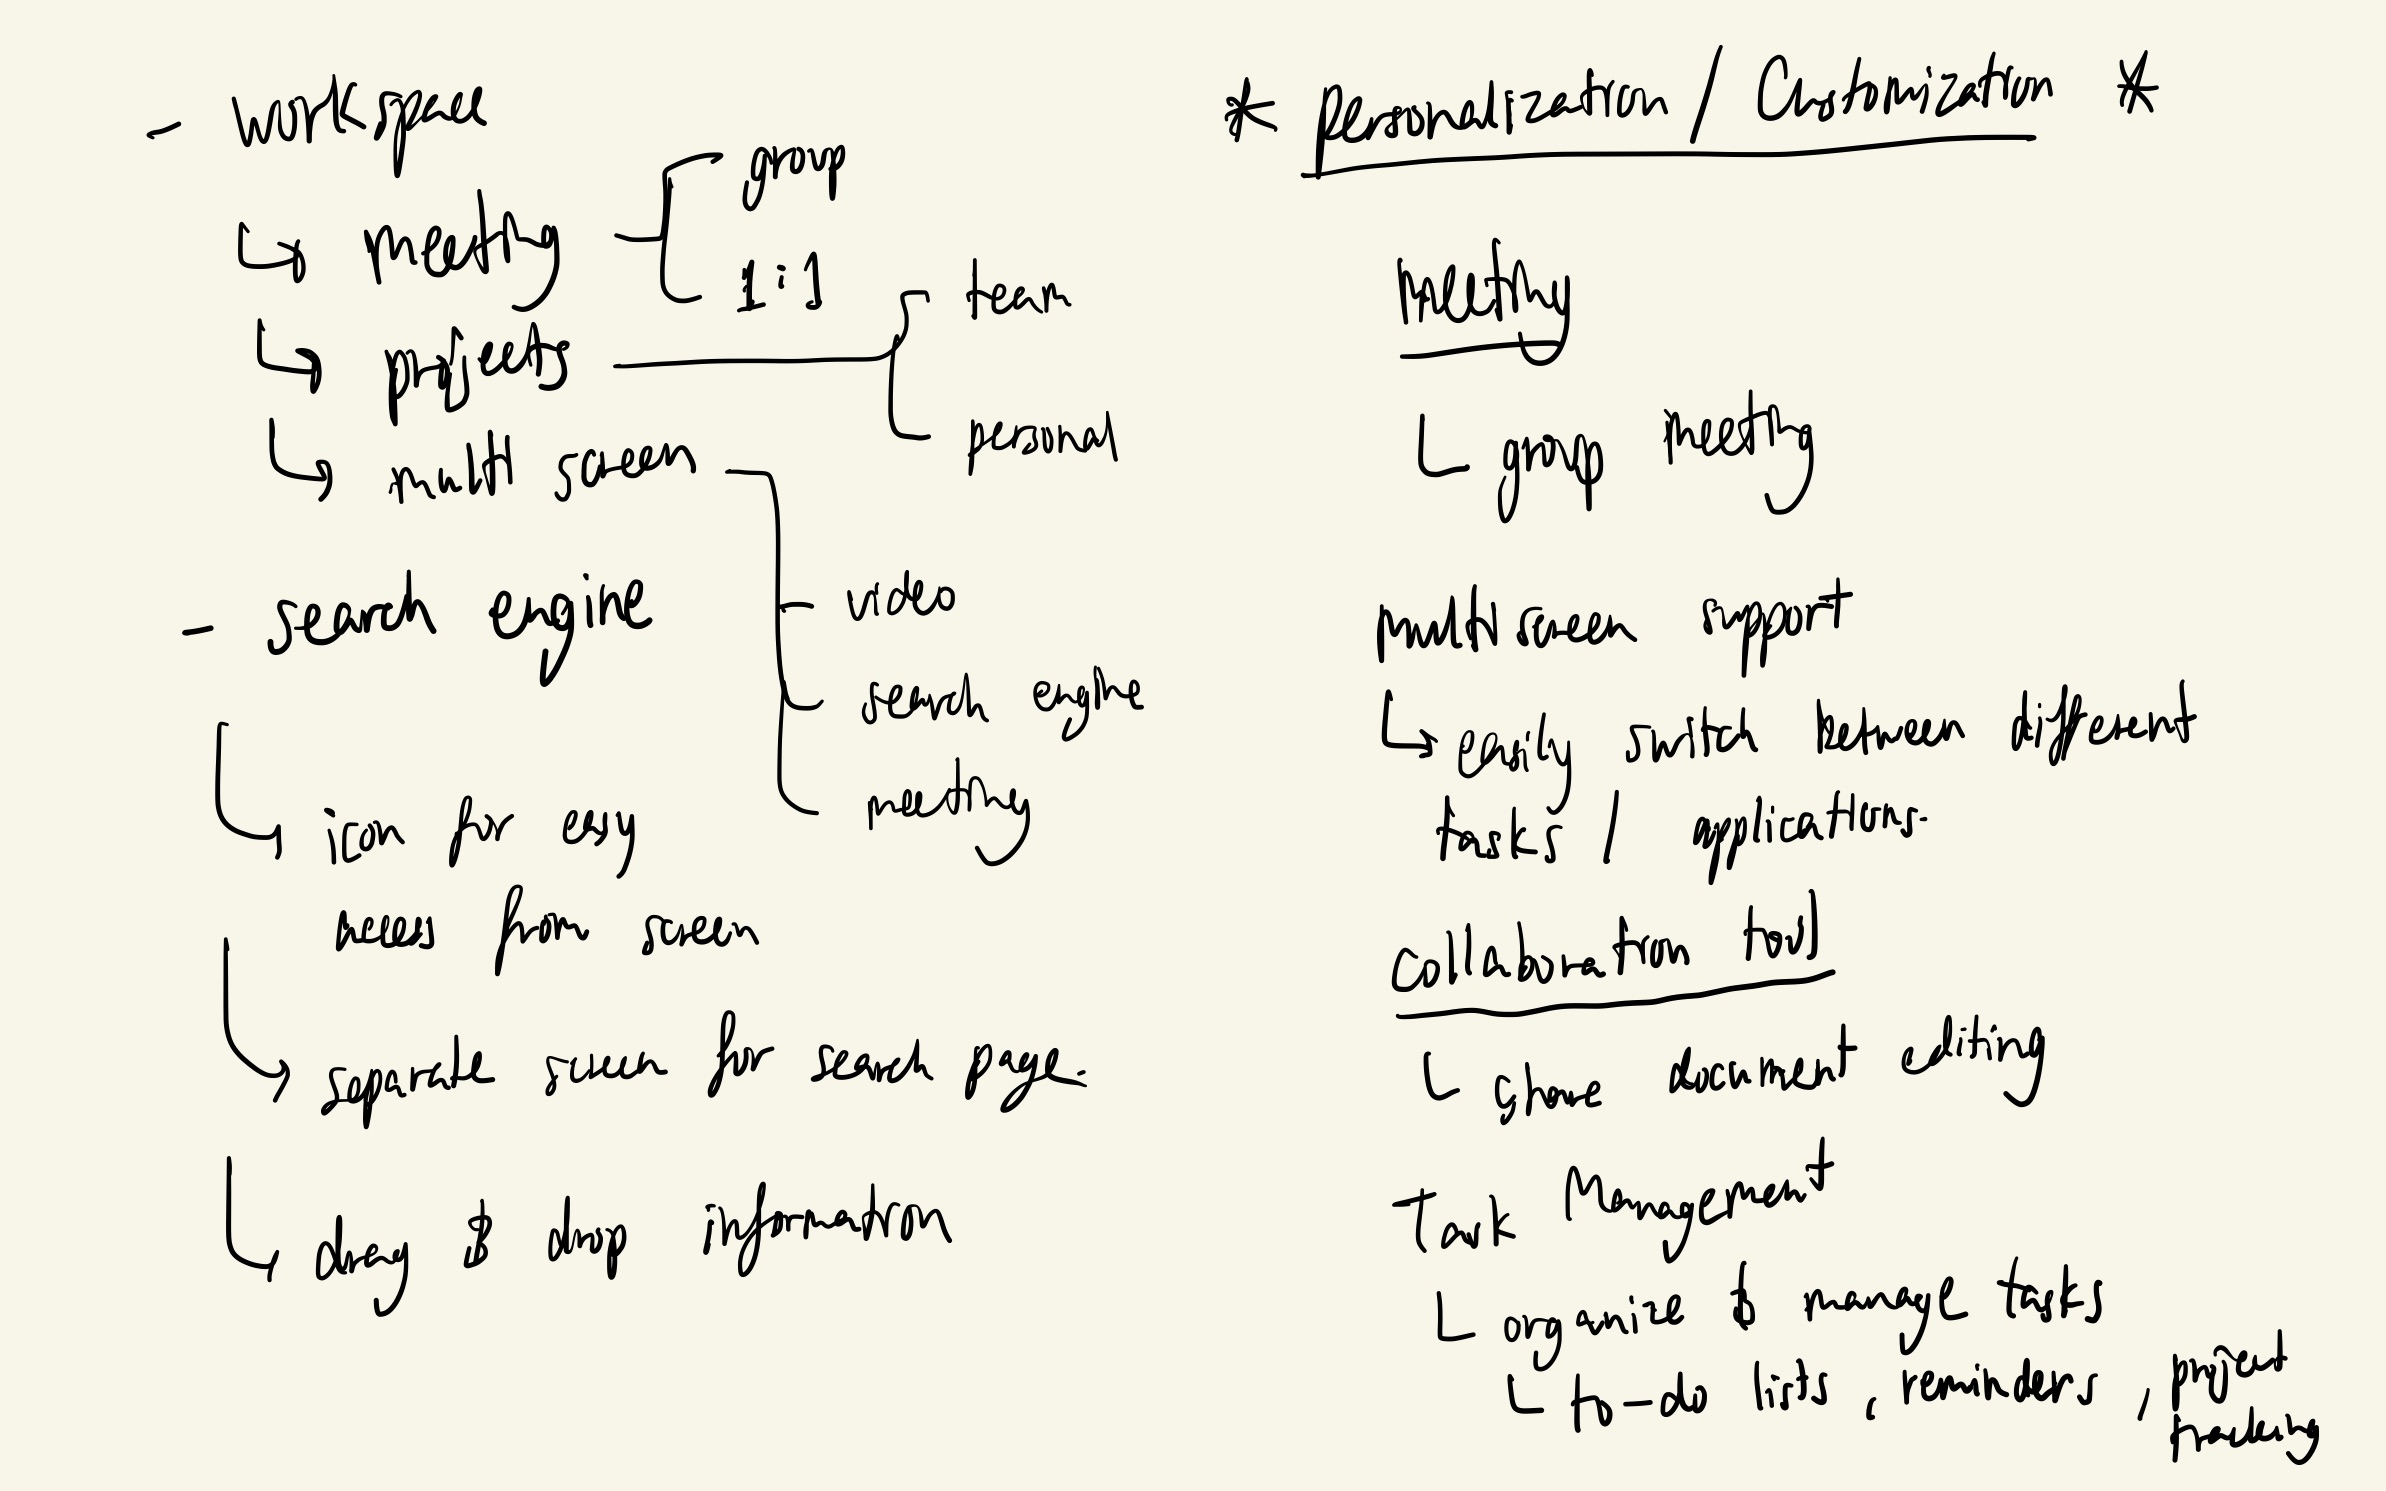 - workspace
↳ meeting
group
1:1
↳ projects
team
personal
↳ multi screen
video
search engine
meeting
- search engine
↳ icon for easy
access from screen
↳ separate screen for search page.
↳ drag & drop information
* Personalization / Customization *
meeting
└ group meeting
multi screen support
↳ easily switch between different
tasks / applications.
collaboration tool
└ share document editing
Task Management
└ organize & manage tasks
└ to-do lists, reminders, project
tracking